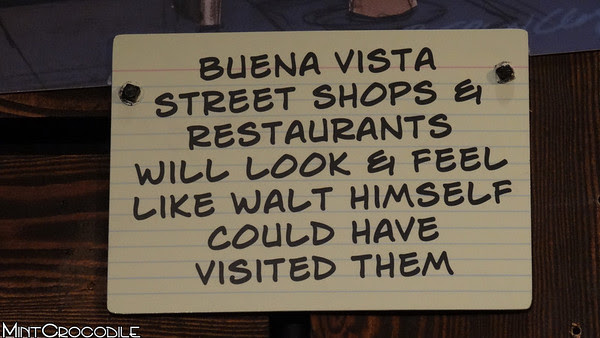 BUENA VISTA
STREET SHOPS &
RESTAURANTS
WILL LOOK & FEEL
LIKE WALT HIMSELF
COULD HAVE
VISITED THEM
MINTCROCODILE